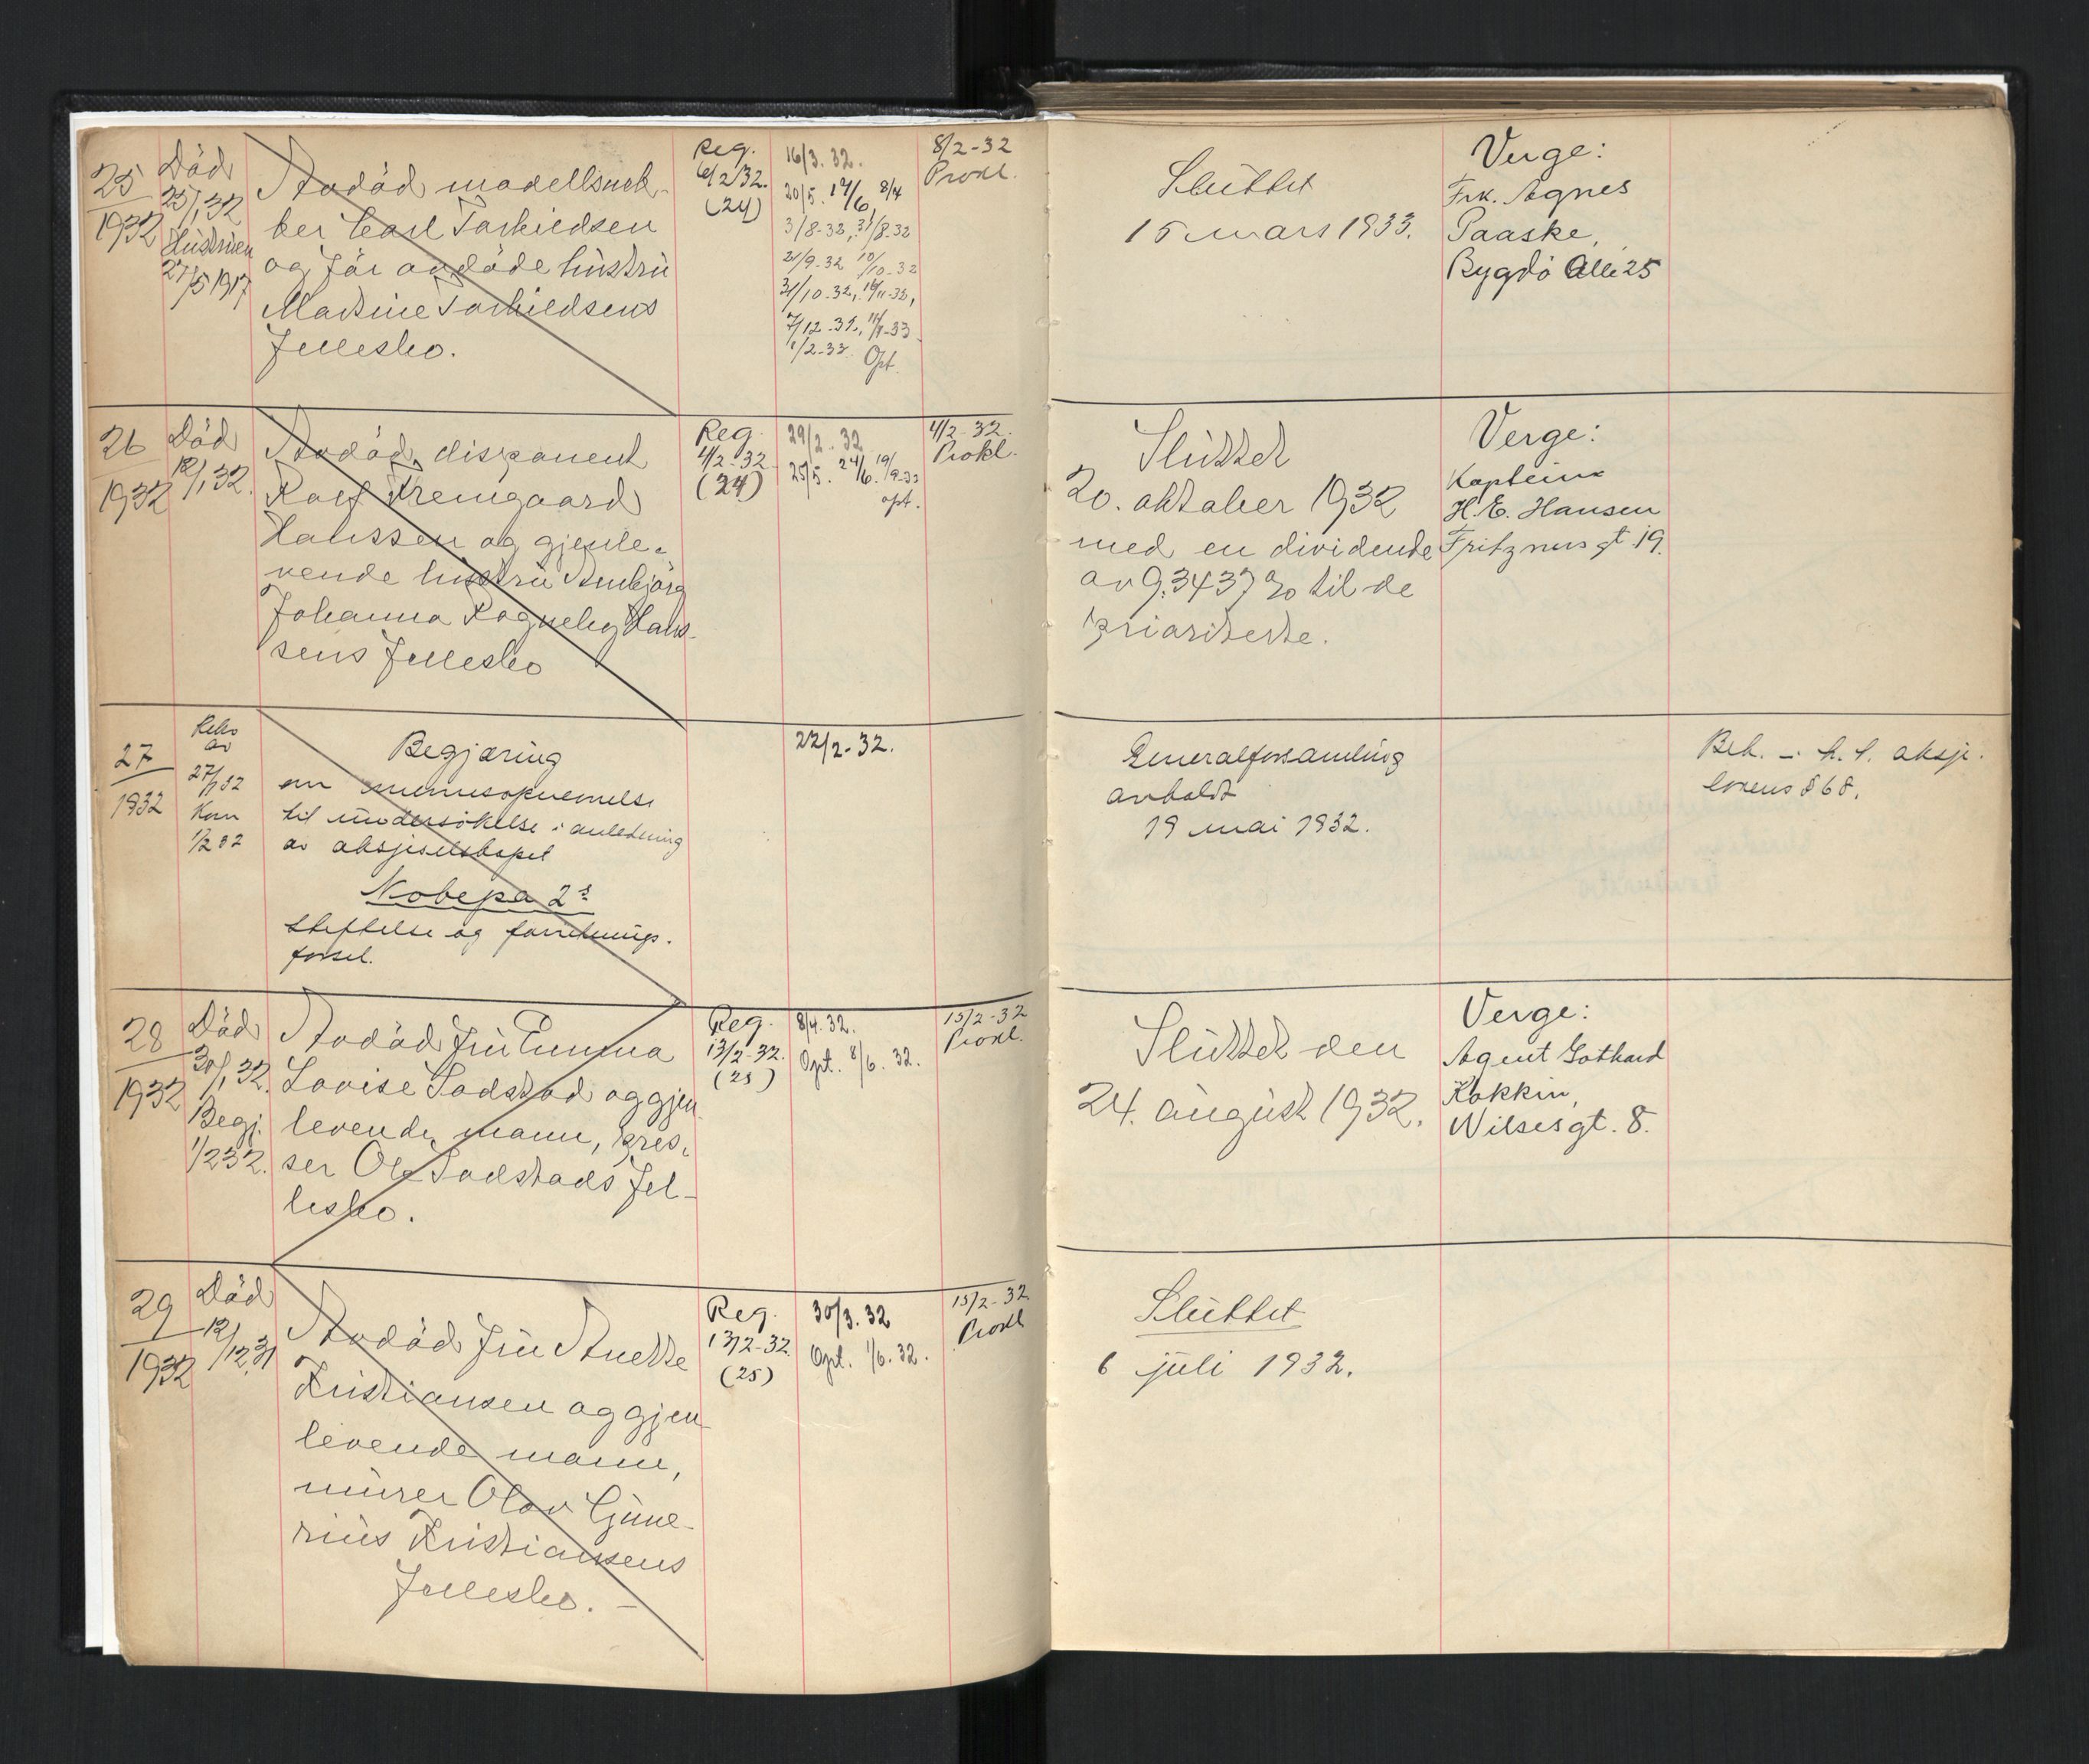 25
1932
Död
25/1 32
Hustruen
27/5 1917
Avdöd modellsnek-
ker Carl Torkildsen
og før avdöde hustru
Martine Torkildsens
Fellesbo.
Reg.
6/2 32.
(24)
16/3. 32.
20/5. 17/6, 8/4
3/8-32, 31/8-32
21/9-32 10/10-32
31/10-32, 16/11-32,
7/12-32, 11/1-33
1/2-33. Opt.
8/2-32
Prokl.
Sluttet
15 mars 1933.
Verge:
Frk. Agnes
Paaske,
Bygdö Alle 25
26
1932
Död
12/1 32.
Avdöd disponent
Rolf Kremgaard
Hanssen og gjenle-
vende hustru Annbjörg
Johanna Ragneborg Hans-
sens Fellesbo
Reg.
4/2-32
(24)
29/2-32
25/5. 24/6. 19/9-32
opt.
4/2-32.
Prokl.
Sluttet
20. oktober 1932
med en dividende
av 9.3437 % til de
prioriterte.
Verge:
Kaptein
H. E. Hansen
Fritznersgt 19.
27
1932
Rekv
av
27/1 32
Kom
1/2 32
Begjæring
om
til undersökelse i anledning
av aksjeselskapet
Nobepa 2s
stiftelse og forretnings-
førsel.
22/2-32.
Generalforsamling
avholdt
19 mai 1932.
Beh. - h. t. aksje-
lovens § 68.
28
1932
Död
30/1 32.
Begj.
1/2 32.
Avdöd fru Emma
Lovise Sodstad og gjen-
levende mann, pres-
ser Ole Sodstads Fel-
lesbo.
Reg.
13/2-32.
(25)
8/4. 32.
Opt. 8/6. 32.
15/2-32
Prokl.
Sluttet den
24. august 1932.
Verge:
Agent Gothard
Kokkin,
Nilsesgt. 8.
29
1932
Död
12/12 31
Avdöd fru Anette
Kristiansen og gjen-
levende mann,
murer Olav Gune-
rius Kristiansens
Fellesbo. -
Reg.
13/2-32.
(25)
30/3. 32
Opt. 1/6. 32.
15/2-32
Prokl
Sluttet
6 juli 1932.